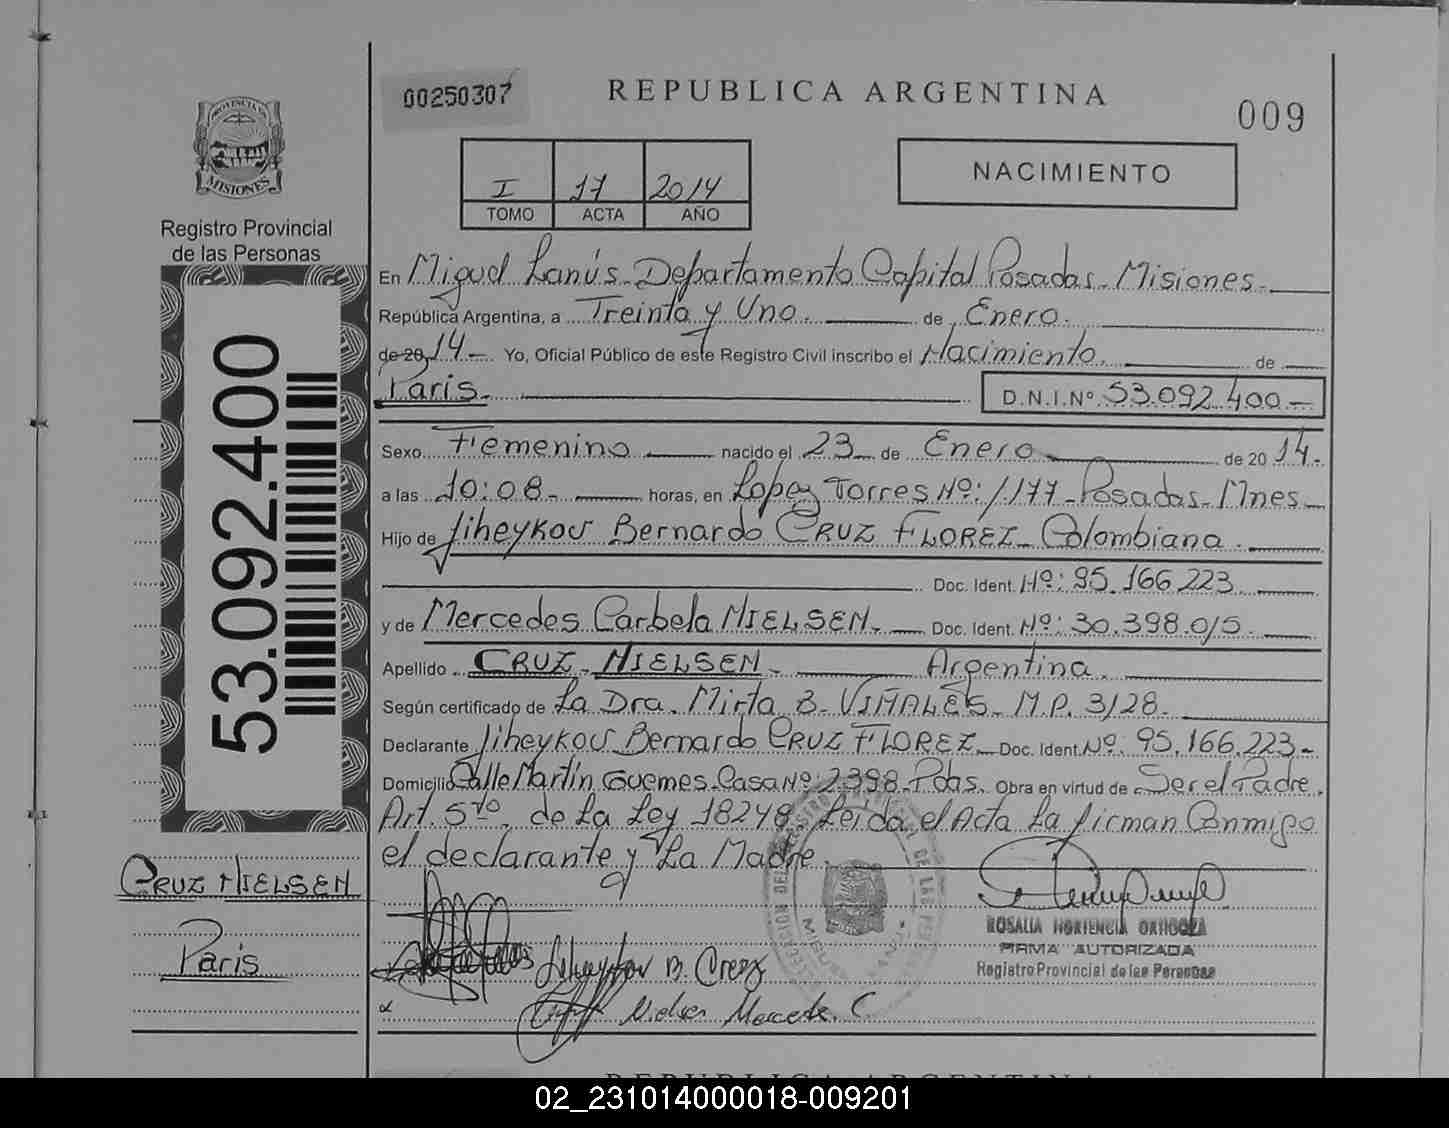 00250307
REPUBLICA ARGENTINA
009
PROVINCIA DE
MISIONES
I 17 2014
TOMO ACTA AÑO
NACIMIENTO
Registro Provincial
de las Personas
En Miguel Lanús - Departamento Capital Posadas - Misiones.-
República Argentina, a Treinta y Uno. de Enero.
de 2014.- Yo, Oficial Público de este Registro Civil inscribo el Nacimiento. de
Paris.
D.N.I.Nº. 53.092.400.-
53.092.400
Sexo Femenino nacido el 23 de Enero de 2014.
a las 10:08- horas, en Lopez Torres Nº: 1177 - Posadas - Mnes
Hijo de Jiheykov Bernardo CRUZ FLOREZ - Colombiana.
Doc. Ident. Nº: 95.166.223
y de Mercedes Carbela NIELSEN.- Doc. Ident. Nº: 30.398.015.
Apellido CRUZ - NIELSEN - Argentina.
Según certificado de La Dra. Mirta B. VIÑALES - M.P. 3128.
Declarante Jiheykov Bernardo CRUZ FLOREZ - Doc. Ident. Nº. 95.166.223-
Domicilio Calle Martín Guemes - Casa Nº: 2398 - Pdas. Obra en virtud de Ser el Padre.
Art. 5to. de La Ley 18248. Leída el Acta La firman Conmigo
el declarante y La Madre.
CRUZ NIELSEN
Paris
ROSALIA HORTENCIA ORTIGOZA
FIRMA AUTORIZADA
Registro Provincial de las Personas
B. Cruz
Nielsen Mercedes C
REPUBLICA ARGENTINA
02_231014000018-009201